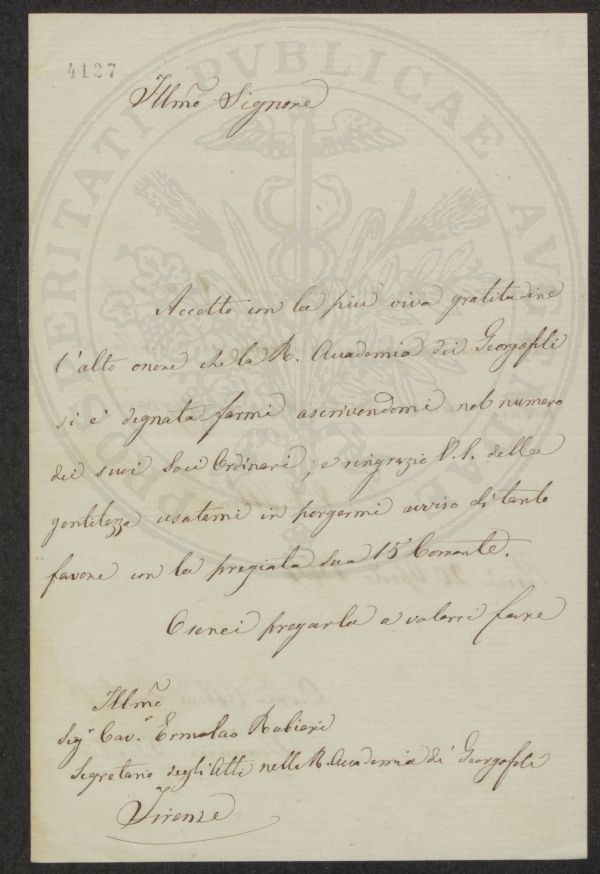 4127
Illmo Signore
Accetto con la più viva gratitudine
l'alto onore che la R. Accademia dei Georgofili
si è degnata farmi ascrivendomi nel numero
dei suoi Soci Ordinari; e ringrazio V. S. della
gentilezza usatami in porgermi avviso di tanto
favore con la pregiata sua 15 Corrente.
Oserei pregarla a volersi fare
Illmo
Sigr Cavr Ermolao Rubieri
Segretario degli Atti nella R. Accademia de' Georgofili
Firenze
PROSPERITATI PVBLICAE AVGENDAE